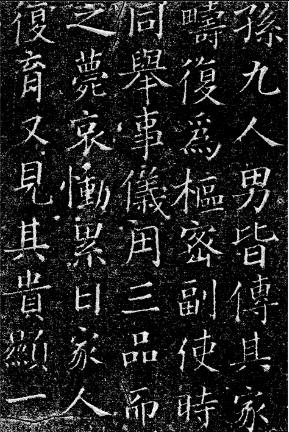 孫九人男皆傳其家
疇復為樞密副使時
同舉事儀用三品而
之薨哀慟累日家人
復育又見其貴顯一